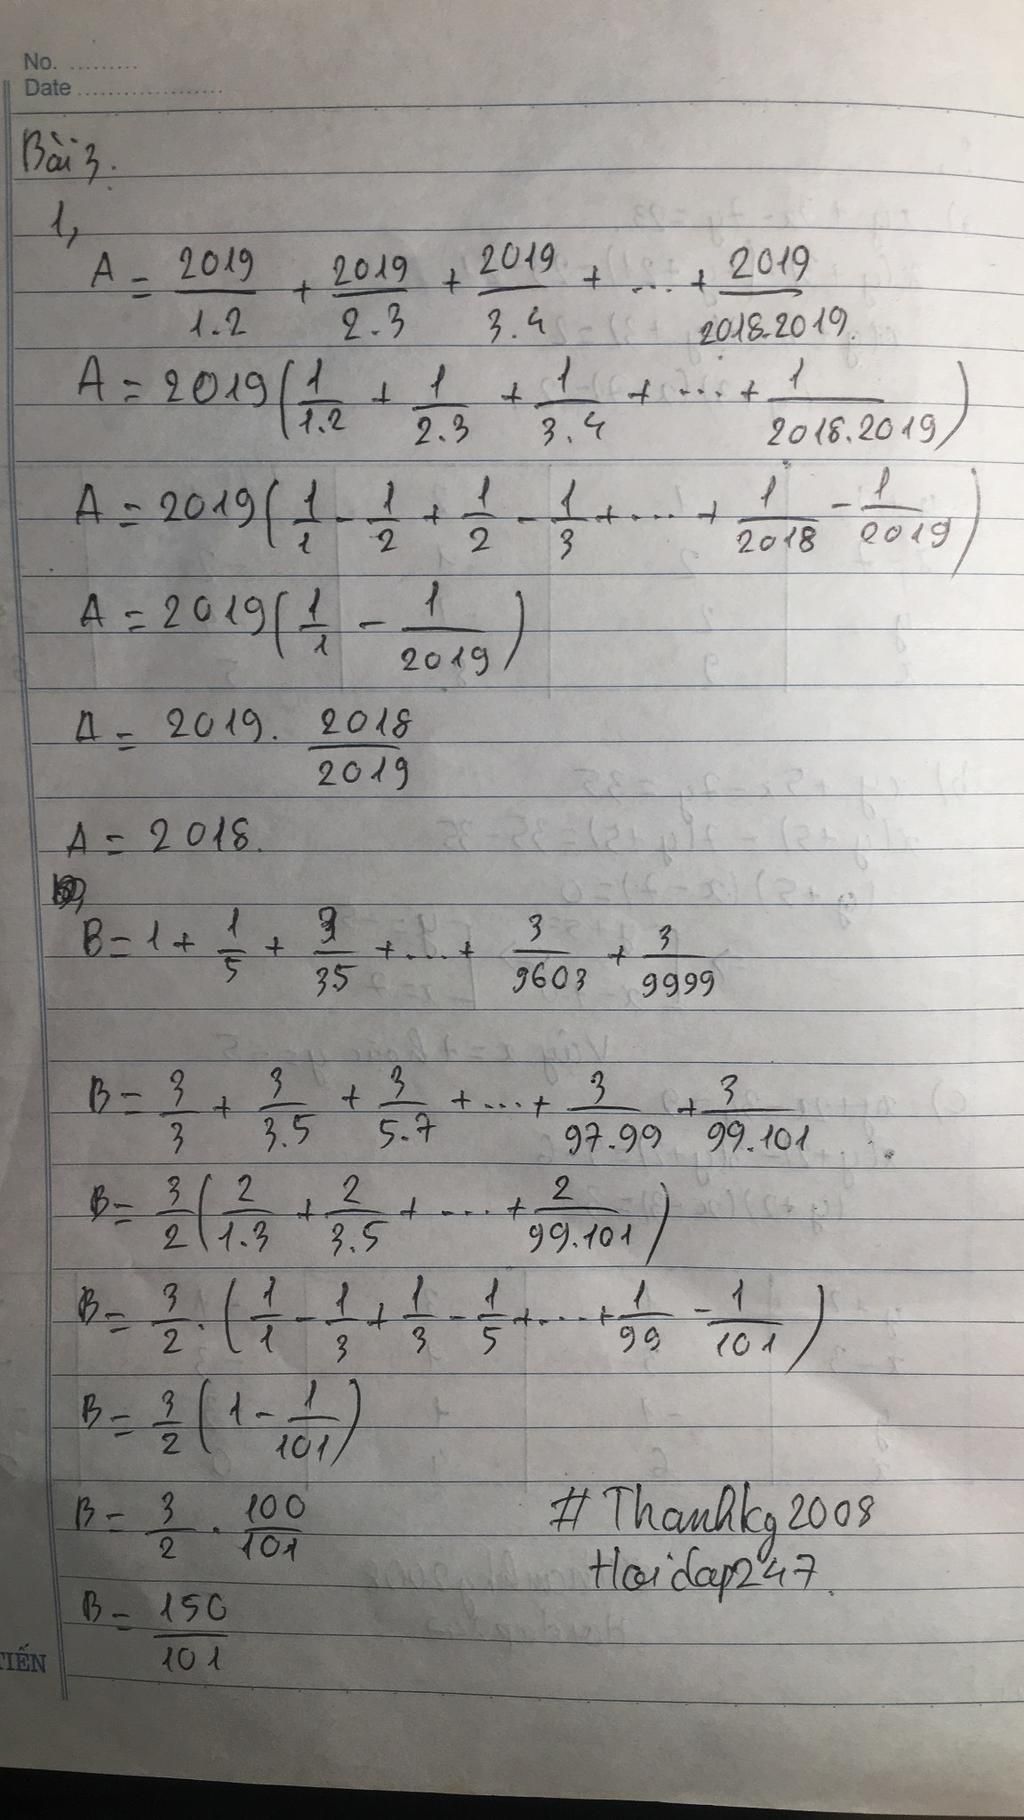 No. .........
Date ...................
Bài 3.
1,
A = 2019/1.2 + 2019/2.3 + 2019/3.4 + ... + 2019/2018.2019.
A = 2019(1/1.2 + 1/2.3 + 1/3.4 + ... + 1/2018.2019)
A = 2019(1/1 - 1/2 + 1/2 - 1/3 + ... + 1/2018 - 1/2019)
A = 2019(1/1 - 1/2019)
A = 2019. 2018/2019
A = 2018.
B = 1 + 1/5 + 3/35 + ... + 3/9603 + 3/9999
B = 3/3 + 3/3.5 + 3/5.7 + ... + 3/97.99 + 3/99.101
B = 3/2(2/1.3 + 2/3.5 + ... + 2/99.101)
B = 3/2.(1/1 - 1/3 + 1/3 - 1/5 + ... + 1/99 - 1/101)
B = 3/2(1 - 1/101)
B = 3/2 . 100/101
# Thanhkg2008
Hoidap247.
B = 150/101
TIẾN